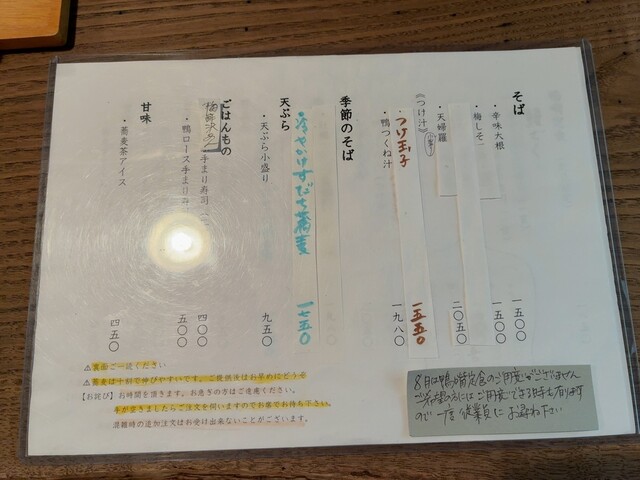 そば
・辛味大根 一五〇〇
・梅しそ 一五〇〇
・天婦羅 二〇五〇
《つけ汁》
つけ玉子 一五五〇
・鴨つくね汁 一九八〇
季節のそば
・冷やかけすだち蕎麦 一七五〇
天ぷら
・天ぷら小盛り 九五〇
ごはんもの
手まり寿司 四〇〇
・鴨ロース手まり 五〇〇
甘味
・蕎麦茶アイス 四五〇
⚠裏面ご一読ください
⚠蕎麦は十割で伸びやすいです。ご提供後はお早めにどうぞ
【お詫び】お時間を頂きます。お急ぎの方はご遠慮ください。
手が空きましたらご注文を伺いますのでお席でお待ち下さい。
混雑時の追加注文はお受け出来ないことがございます。
8月は鴨が限定食のご用意がございません
ご希望の方にはご用意できる時も有ります
ので一度従業員にお尋ね下さい